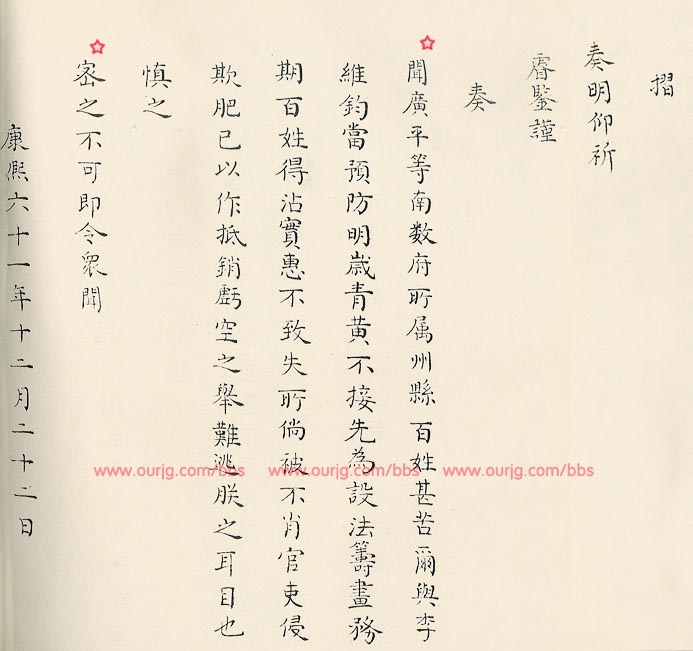 摺
奏明仰祈
睿鑒謹
奏
聞廣平等南数府所属州縣百姓甚苦爾與李
維鈞當預防明歲青黃不接先為設法籌畫務
期百姓得沾實惠不致失所倘被不肖官吏侵
欺肥已以作抵銷虧空之舉難逃朕之耳目也
慎之
密之不可即令衆聞
康熈六十一年十二月二十二日
www.ourjg.com/bbs
www.ourjg.com/bbs
www.ourjg.com/bbs